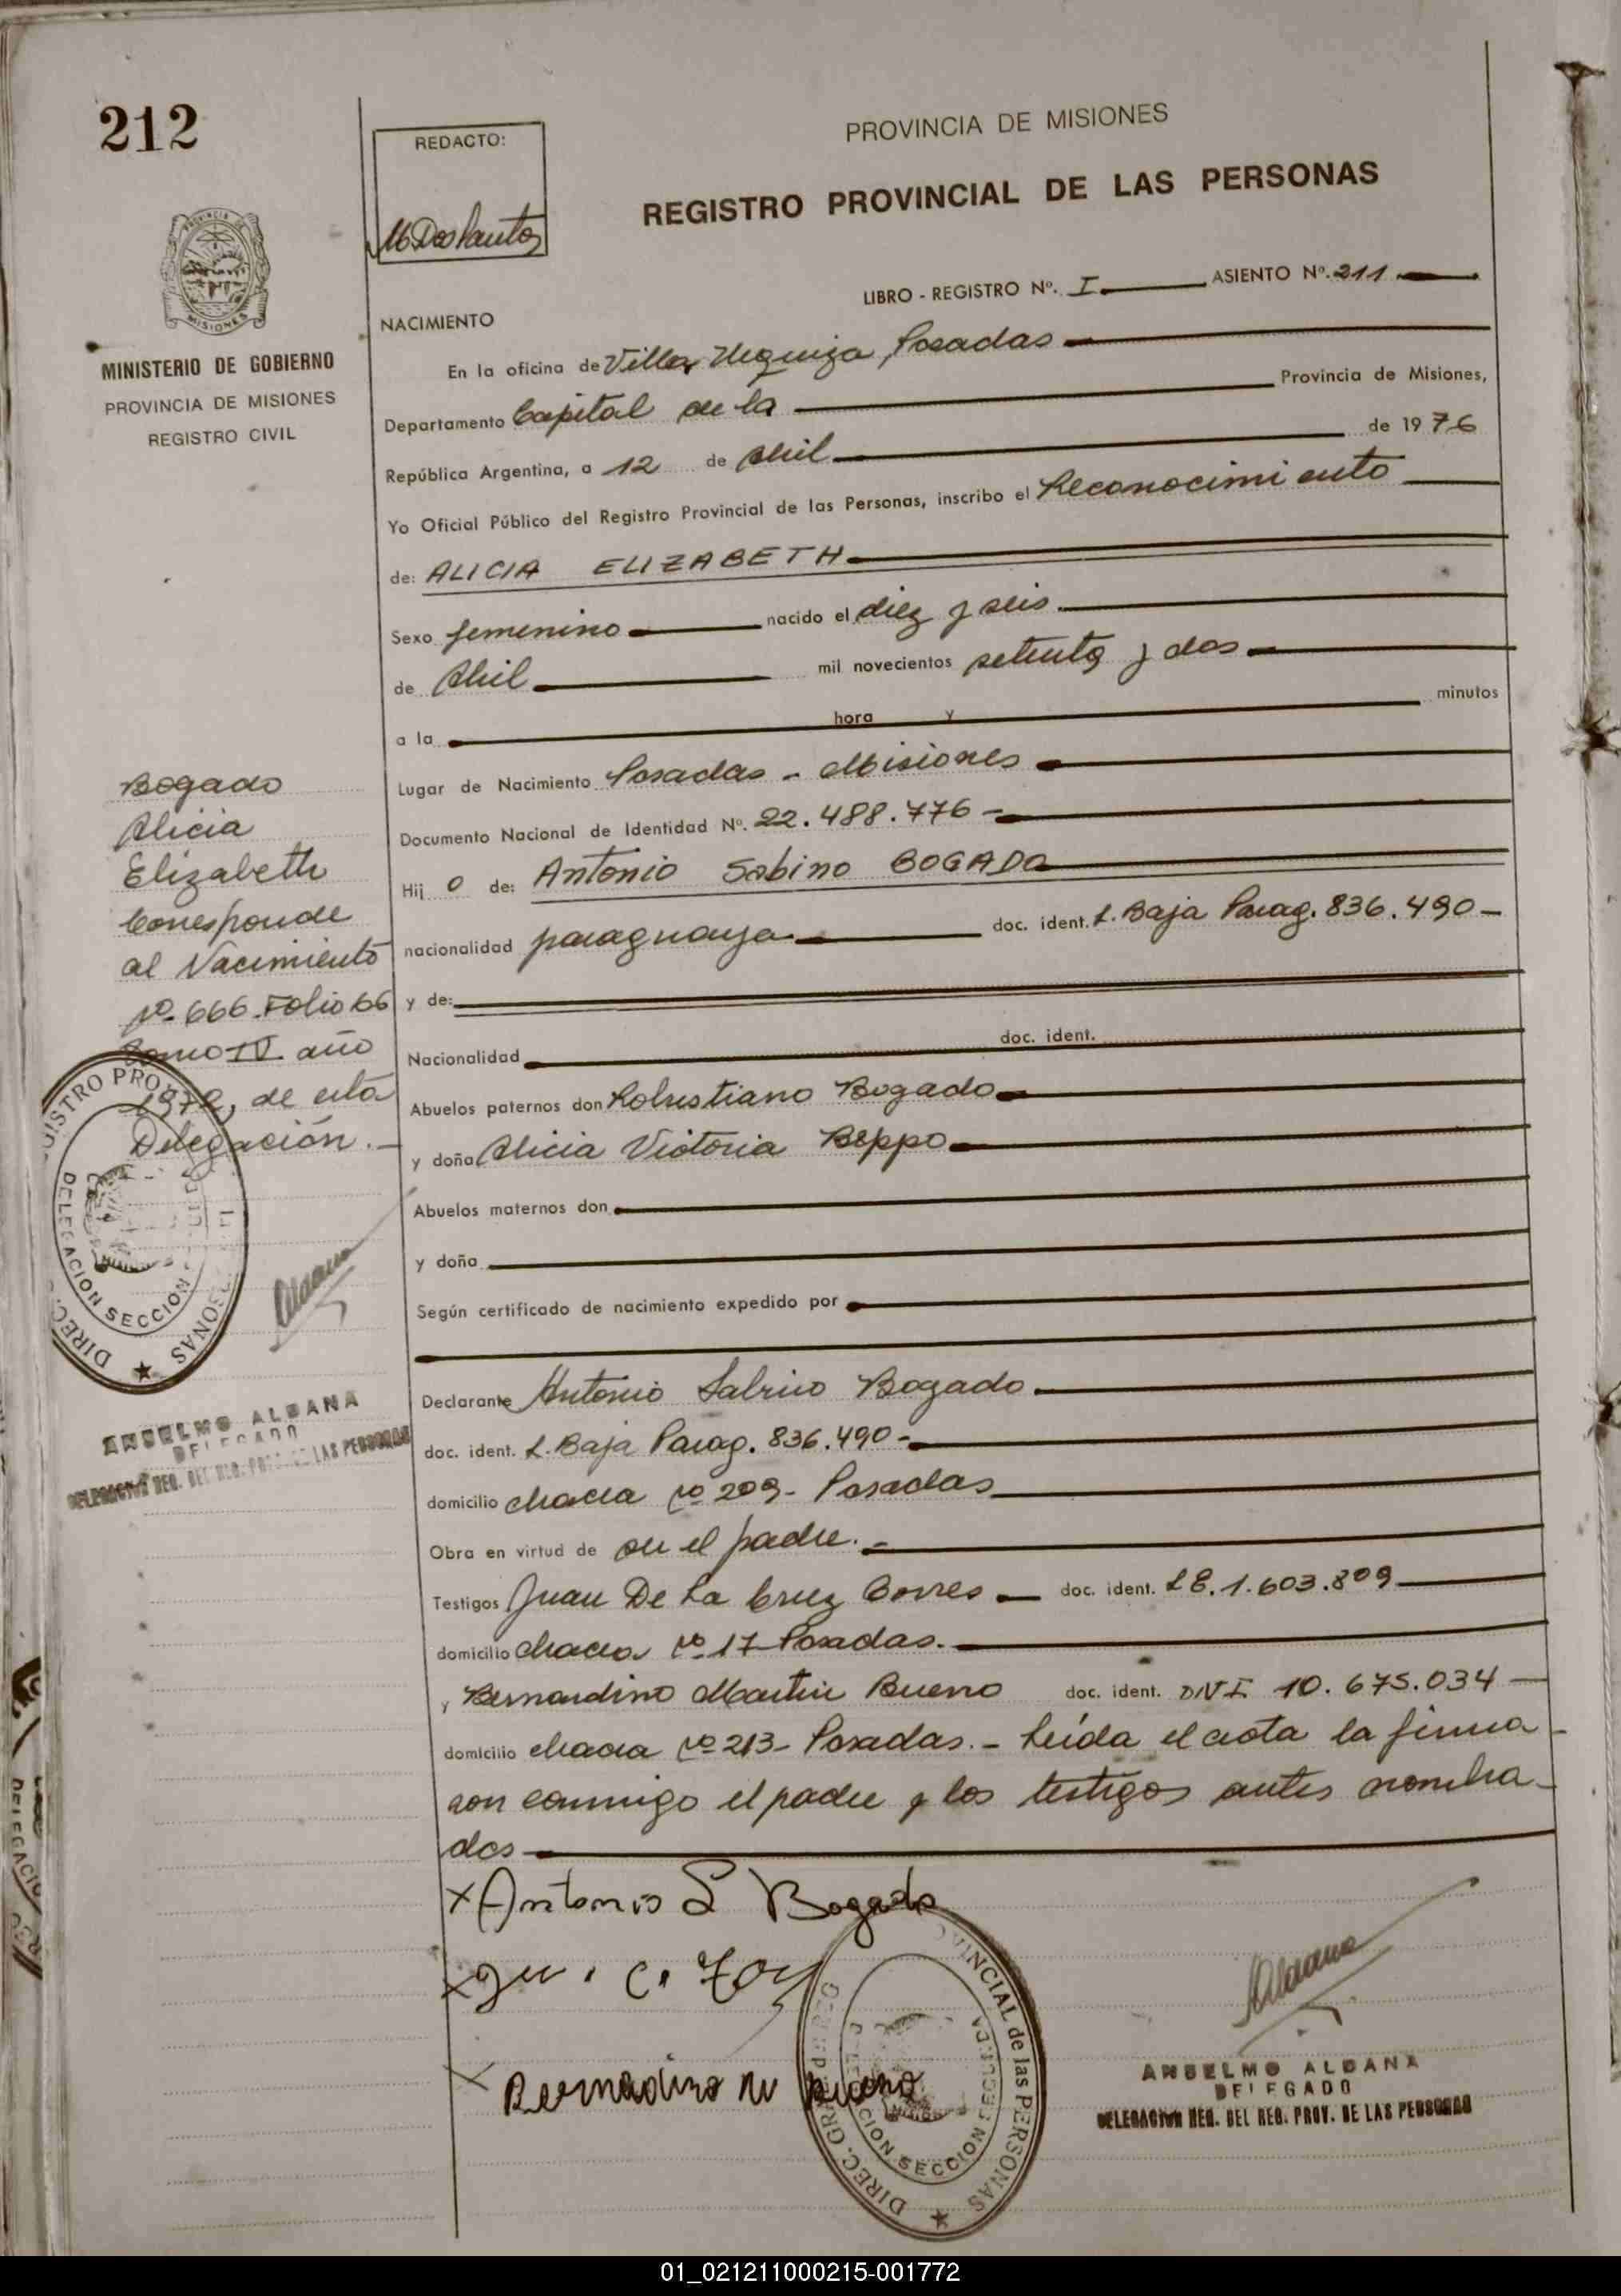 212
REDACTO:
M Dos Santos
PROVINCIA DE MISIONES
REGISTRO PROVINCIAL DE LAS PERSONAS
LIBRO - REGISTRO Nº. I ASIENTO Nº. 211
PROVINCIA DE
MISIONES
MINISTERIO DE GOBIERNO
PROVINCIA DE MISIONES
REGISTRO CIVIL
NACIMIENTO
En la oficina de Villa Urquiza Posadas
Departamento Capital de la Provincia de Misiones,
República Argentina, a 12 de Abril de 1976
Yo Oficial Público del Registro Provincial de las Personas, inscribo el Reconocimiento
de: ALICIA ELIZABETH
Sexo femenino nacido el diez y seis
de Abril mil novecientos setenta y dos
a la hora y minutos
Lugar de Nacimiento Posadas - Misiones
Documento Nacional de Identidad Nº. 22.488.776 -
Hij o de: Antonio Sabino BOGADO
nacionalidad paraguaya doc. ident. L. Baja Parag. 836.490 -
y de:
Nacionalidad doc. ident.
Abuelos paternos don Robustiano Bogado
y doña Alicia Victoria Beppo
Abuelos maternos don
y doña
Según certificado de nacimiento expedido por
Declarante Antonio Sabino Bogado
doc. ident. L. Baja Parag. 836.490 -
domicilio chacra Nº 209 - Posadas
Obra en virtud de ser el padre. -
Testigos Juan De La Cruz Torres doc. ident. LE. 1.603.809
domicilio chacra Nº 17 Posadas. -
y Bernardino Martin Bueno doc. ident. DNI 10.675.034 -
domicilio chacra Nº 213 - Posadas. - Leída el acta la firma
con conmigo el padre y los testigos antes nombra-
dos
Bogado
Alicia
Elizabeth
Corresponde
al Nacimiento
Nº 666 Folio 66
Tomo IV año
1972, de esta
Delegación. -
DELEGACION SECCION
DIREC.
Aldana
ANSELMO ALDANA
DELEGADO
DELEGACION REG. DEL REG. PROV. DE LAS PERSONAS
x Antonio S Bogado
x Ju. C. Tor
x Bernadino M Bueno
DIREC. GRAL. PROVINCIAL de las PERSONAS
SECCION
Aldana
ANSELMO ALDANA
DELEGADO
DELEGACION REG. DEL REG. PROV. DE LAS PERSONAS
01_021211000215-001772